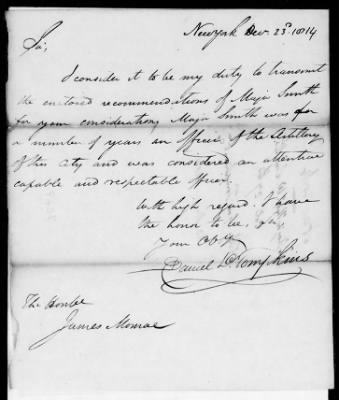 Newyork Dec. 23d 1814
Sir,
I consider it to be my duty to transmit
the enclosed recommendations of Major Smith
for your consideration, Major Smith was for
a number of years an officer of the Artillery
of this City and was considered an attentive
capable and respectable officer
With high regard, I have
the honor to be, Sir,
Your Ob
Daniel D Tompkins
The Honble
James Monroe